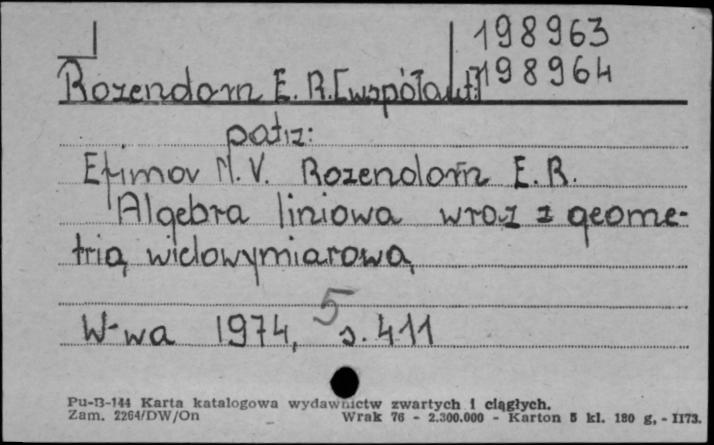 198963
198964
Rozendorn E. R. [współaut.]
patrz:
Efimov N. V. Rozendorn E. R.
Algebra liniowa wraz z geome-
trią wielowymiarową
5
W-wa 1974, s. 411
Pu-B-144 Karta katalogowa wydawnictw zwartych i ciągłych.
Zam. 2264/DW/On Wrak 76 - 2.300.000 - Karton 5 kl. 180 g, - II73.